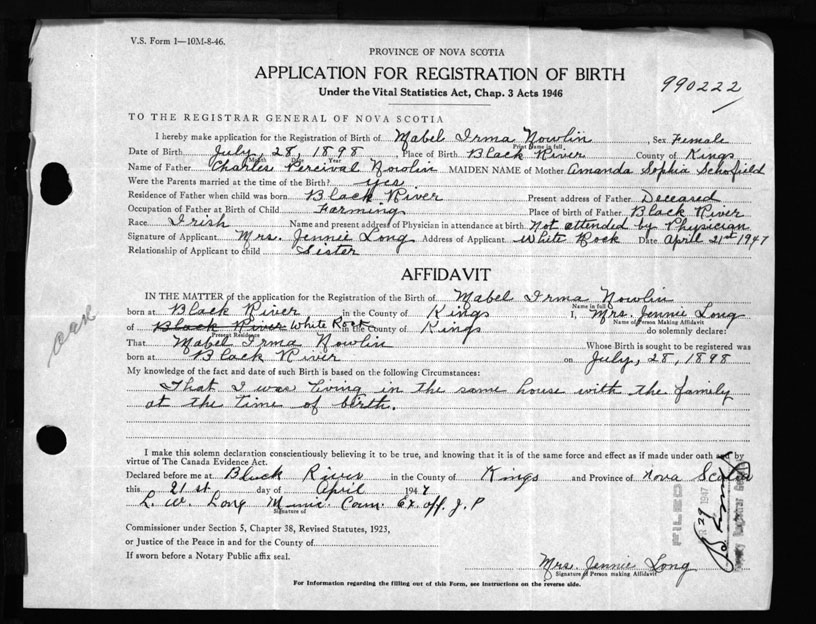 V.S. Form 1—10M-8-46.
PROVINCE OF NOVA SCOTIA
APPLICATION FOR REGISTRATION OF BIRTH
990222
Under the Vital Statistics Act, Chap. 3 Acts 1946
TO THE REGISTRAR GENERAL OF NOVA SCOTIA
I hereby make application for the Registration of Birth of Mabel Irma Nowlin, Sex Female
Print Name in full
Date of Birth July, 28, 1898, Place of Birth Black River County of Kings
Month Year
Name of Father Charles Percival Nowlin MAIDEN NAME of Mother Amanda Sophia Schofield
Were the Parents married at the time of the Birth? yes
Residence of Father when child was born Black River Present address of Father Deceared
Occupation of Father at Birth of Child Farming Place of birth of Father Black River
Race Irish Name and present address of Physician in attendance at birth Not attended by Physician
Signature of Applicant Mrs. Jennie Long Address of Applicant White Rock Date April 21st 1947
Relationship of Applicant to child Sister
AFFIDAVIT
IN THE MATTER of the application for the Registration of the Birth of Mabel Irma Nowlin
Name in full
born at Black River in the County of Kings I, Mrs. Jennie Long
Name of Person Making Affidavit
of Black River White Rock in the County of Kings do solemnly declare:
Present Residence
That Mabel Irma Nowlin Whose Birth is sought to be registered was
born at Black River on July, 28, 1898
My knowledge of the fact and date of such Birth is based on the following Circumstances:
That I was living in the same house with the family
at the time of birth.
I make this solemn declaration conscientiously believing it to be true, and knowing that it is of the same force and effect as if made under oath and by
virtue of The Canada Evidence Act.
Declared before me at Black River in the County of Kings and Province of Nova Scotia
this 21st day of April 1947
L. W. Long Munic. Coun. Ex. off. J. P
Signature of
FILED
29 1947
Commissioner under Section 5, Chapter 38, Revised Statutes, 1923,
or Justice of the Peace in and for the County of
If sworn before a Notary Public affix seal.
Mrs. Jennie Long
Signature of Person making Affidavit
For Information regarding the filling out of this Form, see instructions on the reverse side.